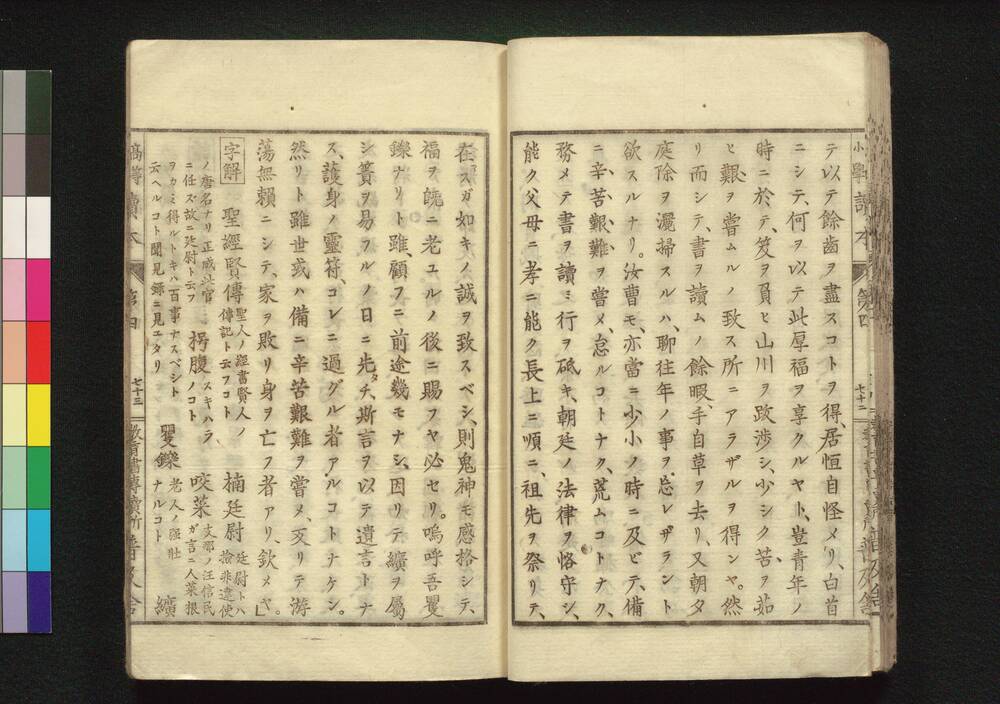 テ以テ餘齒ヲ盡スコトヲ得、居恒自怪メリ、白首
ニシテ、何ヲ以テ此厚福ヲ享クルヤト、豈青年ノ
時ニ於テ、笈ヲ負ヒ山川ヲ跋渉シ、少シク苦ヲ茹
ヒ艱ヲ嘗ムルノ致ス所ニアラザルヲ得ンヤ。然
リ而シテ、書ヲ讀ムノ餘暇、手自草ヲ去リ、又朝夕
庭除ヲ灑掃スルハ、聊往年ノ事ヲ忘レザラント
欲スルナリ。汝曹モ、亦當ニ少小ノ時ニ及ビテ、備
ニ辛苦艱難ヲ嘗メ、怠ルコトナク、荒ムコトナク、
務メテ書ヲ讀ミ行ヲ砥キ、朝廷ノ法律ヲ恪守シ、
能ク父母ニ孝ニ能ク長上ニ順ニ、祖先ヲ祭リテ、
小學讀本
第四
七十二
在スガ如キノ誠ヲ致スベシ、則鬼神モ感格シテ、
福ヲ既ニ老ユルノ後ニ賜フヤ必セリ。嗚呼吾矍
鑠ナリト雖、顧フニ前途幾モナシ、因リテ纊ヲ屬
シ簀ヲ易フルノ日ニ先タチ、斯言ヲ以テ遺言トナ
ス、護身ノ靈符、コレニ過グル者アルコトナケン。
然リト雖世或ハ備ニ辛苦艱難ヲ嘗メ、反リテ游
蕩無賴ニシテ、家ヲ敗リ身ヲ亡フ者アリ、欽メヤ。」
字解 聖經賢傳 聖人ノ經書賢人ノ傳記ト云フコト 楠廷尉 廷尉トハ檢非違使
ノ唐名ナリ正成此官ニ任ズ故ニ廷尉ト云フ 枵腹 スキハラノコト 咬菜 支那ノ汪信民ガ言ニ人菜根
ヲカミ得ルトキハ百事ナスベシト云ヘルコト聞見錄ニ見エタリ 矍鑠 老人ノ强壯ナルコト 纊
讀本
第四
七十三